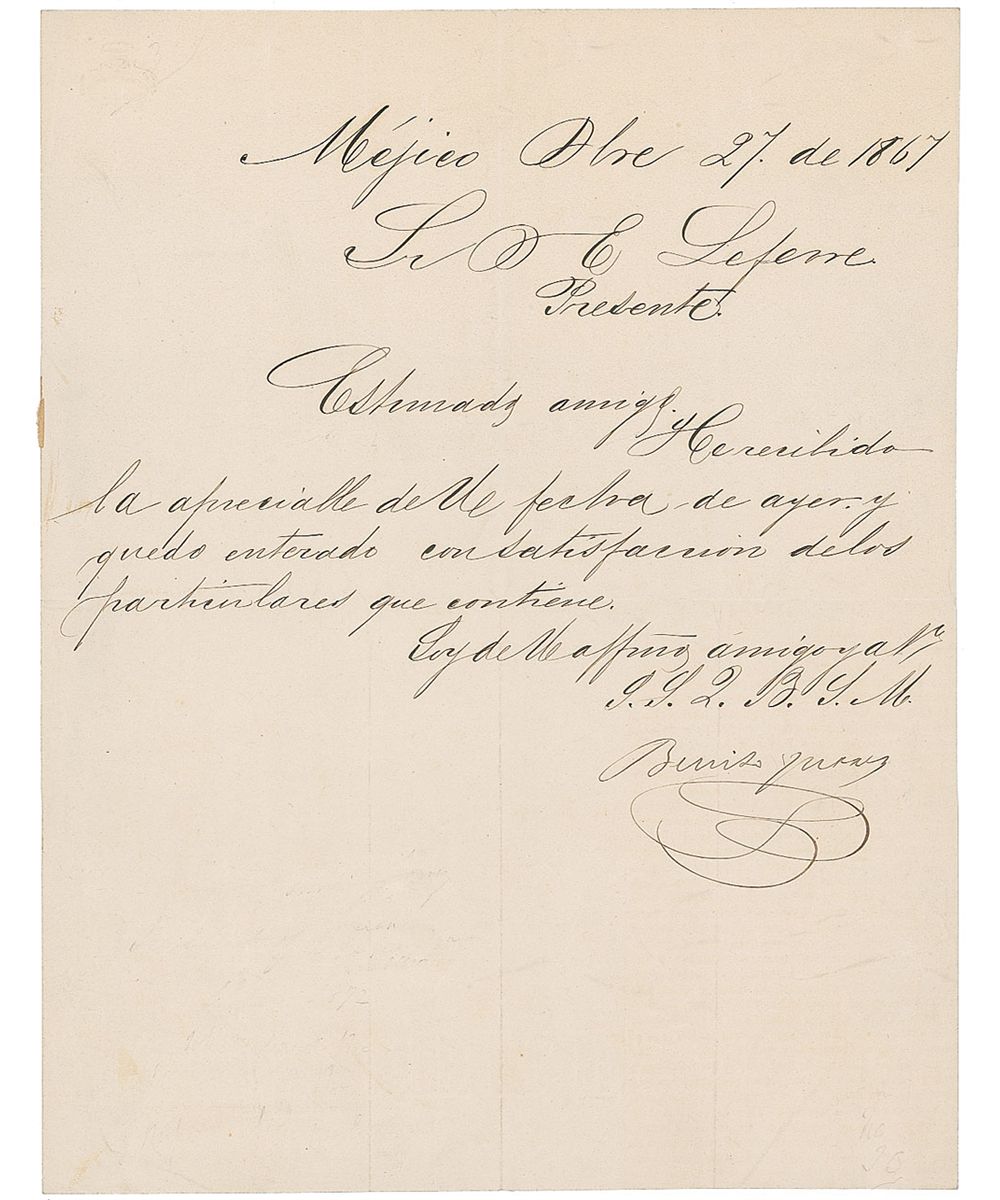 Méjico Dbre 27. de 1867
Sr D E Lefevre
Presente.
Estimado amigo.
He recibido
la apreciable de Ud fecha de ayer y
quedo enterado con satisfaccion de los
particulares que contiene.
Soy de Ud affmo amigo y atto
S. S. Q. B. S. M.
Benito Juarez